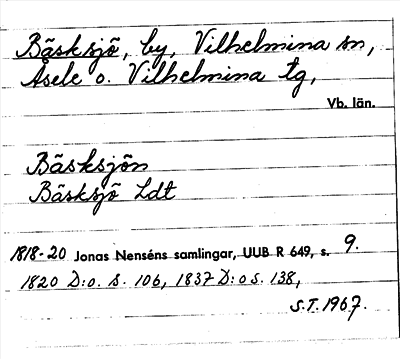 Bäsksjö, by, Vilhelmina sn,
Åsele o. Vilhelmina tg,
Vb. län.
Bäsksjön
Bäsksjö Ldt
1818-20 Jonas Nenséns samlingar, UUB R 649, s. 9.
1820 D:o. s. 106, 1837 D:o s. 138,
S.T. 1967.